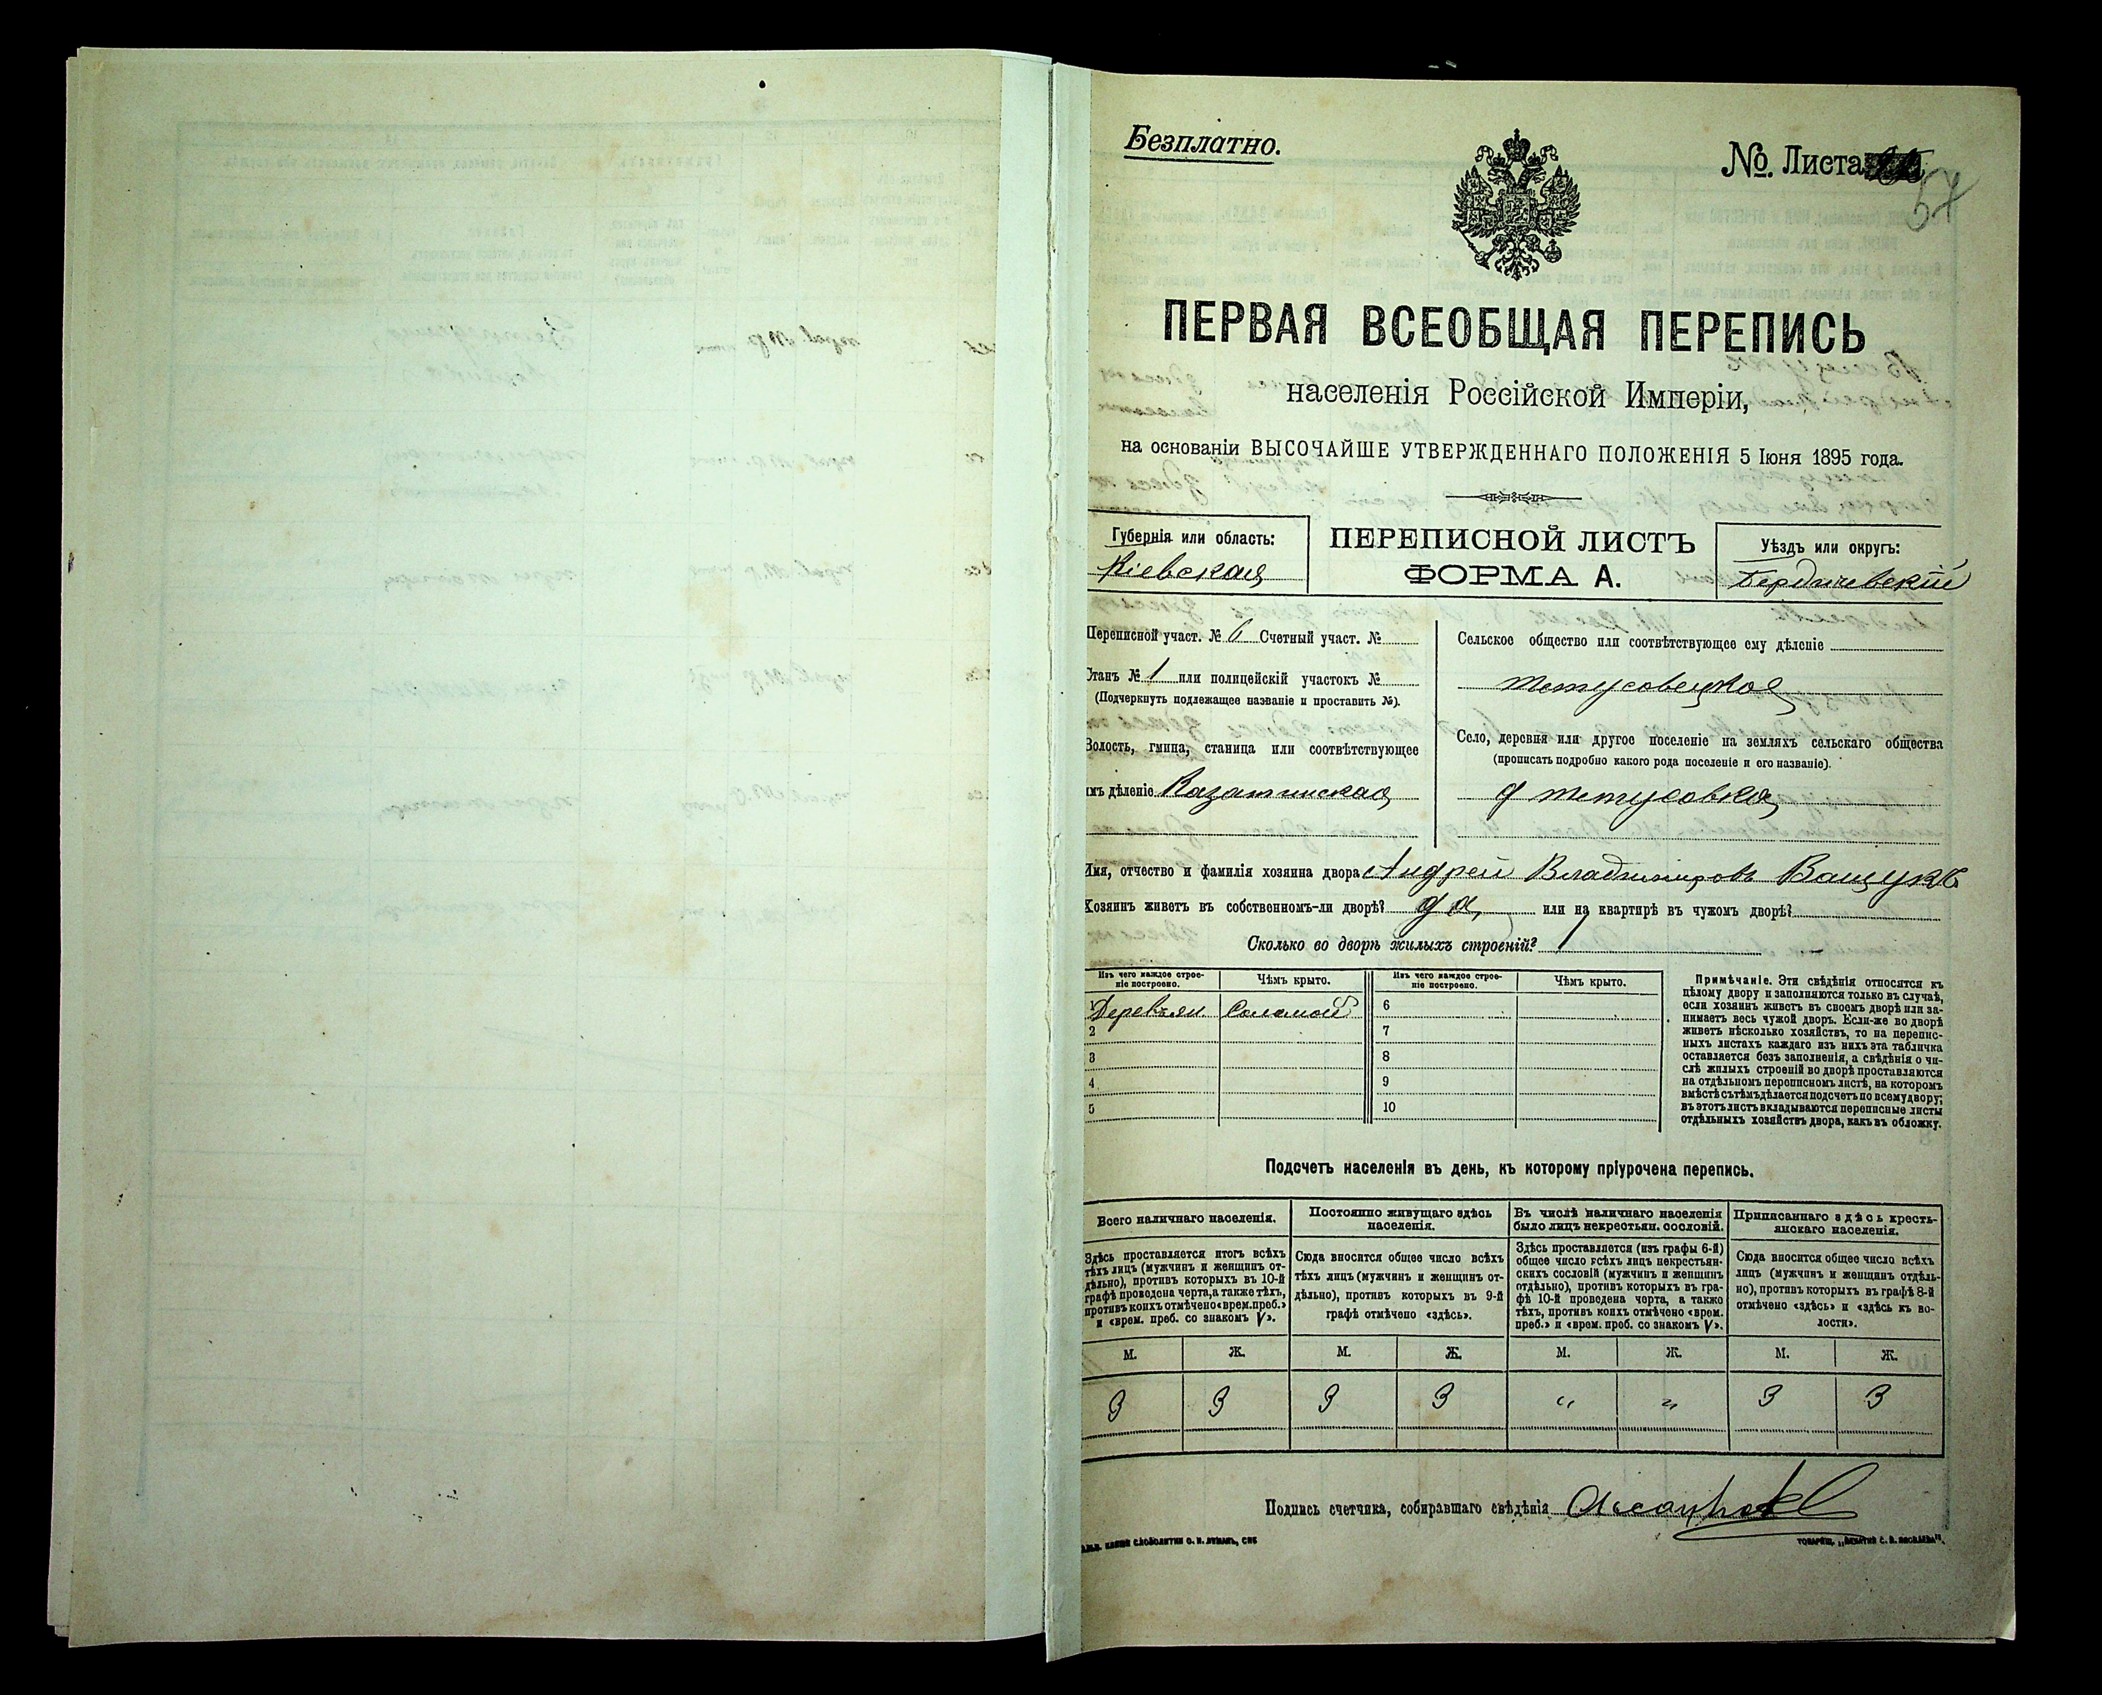 Безплатно.
№. Листа
57
ПЕРВАЯ ВСЕОБЩАЯ ПЕРЕПИСЬ
населенія Россійской Имперіи,
на основаніи ВЫСОЧАЙШЕ УТВЕРЖДЕННАГО ПОЛОЖЕНІЯ 5 Іюня 1895 года.
Губернія или область:
Кіевская
ПЕРЕПИСНОЙ ЛИСТЪ
ФОРМА А.
Уѣздъ или округъ:
Бердичевскій
Переписной участ. № 6 Счетный участ. №
Станъ № 1 или полицейскій участокъ №
(Подчеркнуть подлежащее названіе и проставить №).
Волость, гмина, станица или соотвѣтствующее
имъ дѣленіе Казатинская
Сельское общество или соотвѣтствующее ему дѣленіе
Титусовецкое
Село, деревня или другое поселеніе на земляхъ сельскаго общества
(прописать подробно какого рода поселеніе и его названіе).
д Титусовка
Имя, отчество и фамилія хозяина двора Андрей Владиміровъ Ващукъ
Хозяинъ живетъ въ собственномъ-ли дворѣ? да, или на квартирѣ въ чужомъ дворѣ?
Сколько во дворѣ жилыхъ строеній? 1
Изъ чего каждое строе-
ніе построено.
Чѣмъ крыто.
Изъ чего каждое строе-
ніе построено.
Чѣмъ крыто.
1 Деревян. Соломой 6
2 7
3 8
4 9
5 10
Примѣчаніе. Эти свѣдѣнія относятся къ
цѣлому двору и заполняются только въ случаѣ,
если хозяинъ живетъ въ своемъ дворѣ или за-
нимаетъ весь чужой дворъ. Если-же во дворѣ
живетъ нѣсколько хозяйствъ, то на перепис-
ныхъ листахъ каждаго изъ нихъ эта табличка
оставляется безъ заполненія, а свѣдѣнія о чи-
слѣ жилыхъ строеній во дворѣ проставляются
на отдѣльномъ переписномъ листѣ, на которомъ
вмѣстѣ съ тѣмъ дѣлается подсчетъ по всему двору;
въ этотъ листъ вкладываются переписные листы
отдѣльныхъ хозяйствъ двора, какъ въ обложку.
Подсчетъ населенія въ день, къ которому пріурочена перепись.
Всего наличнаго населенія.
Здѣсь проставляется итогъ всѣхъ
тѣхъ лицъ (мужчинъ и женщинъ от-
дѣльно), противъ которыхъ въ 10-й
графѣ проведена черта, а также тѣхъ,
противъ коихъ отмѣчено «врем. преб.»
и «врем. преб. со знакомъ V».
Постоянно живущаго здѣсь
населенія.
Сюда вносится общее число всѣхъ
тѣхъ лицъ (мужчинъ и женщинъ от-
дѣльно), противъ которыхъ въ 9-й
графѣ отмѣчено «здѣсь».
Въ числѣ наличнаго населенія
было лицъ некрестьян. сословій.
Здѣсь проставляется (изъ графы 6-й)
общее число всѣхъ лицъ некрестьян-
скихъ сословій (мужчинъ и женщинъ
отдѣльно), противъ которыхъ въ гра-
фѣ 10-й проведена черта, а также
тѣхъ, противъ коихъ отмѣчено «врем.
преб.» и «врем. преб. со знакомъ V».
Приписаннаго здѣсь кресть-
янскаго населенія.
Сюда вносится общее число всѣхъ
лицъ (мужчинъ и женщинъ отдѣль-
но), противъ которыхъ въ графѣ 8-й
отмѣчено «здѣсь» и «здѣсь къ во-
лости».
М. Ж. М. Ж. М. Ж. М. Ж.
3 3 3 3 „ „ 3 3
Подпись счетчика, собиравшаго свѣдѣнія